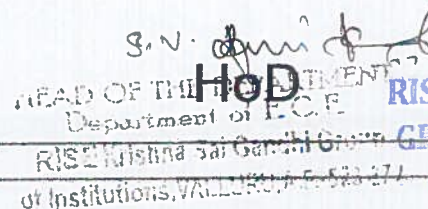 S.N.
HEAD OF THE DEPARTMENT
HoD
Department of E.C.E
RIS
RISE Krishna Sai Gandhi Group
of Institutions, VALLURU, A.P-523 27